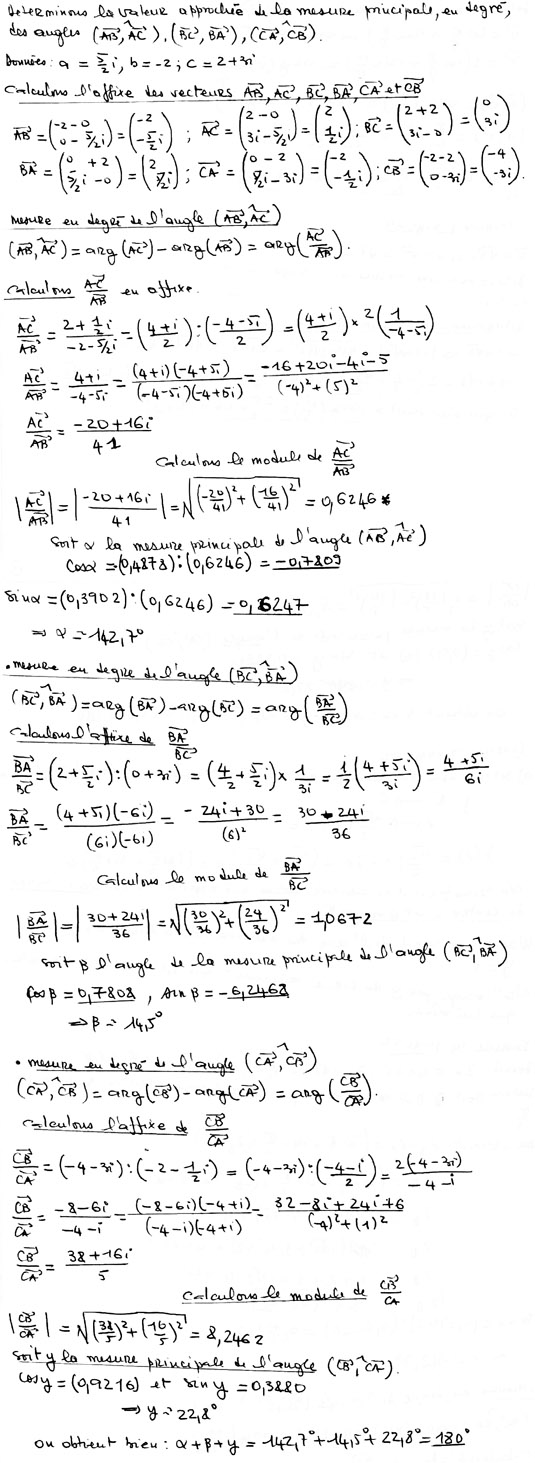 Determinons la valeur approchée de la mesure principale, en degré,
des angles (AB, AC), (BC, BA), (CA, CB).
Données : a = 5/2 i, b = -2 ; c = 2+3i
Calculons l'affixe des vecteurs AB, AC, BC, BA, CA et CB
AB = (-2-0 / 0-5/2i) = (-2 / -5/2i) ; AC = (2-0 / 3i-5/2i) = (2 / 1/2i) ; BC = (2+2 / 3i-0) = (0 / 3i)
BA = (0+2 / 5/2i-0) = (2 / 5/2i) ; CA = (0-2 / 5/2i-3i) = (-2 / -1/2i) ; CB = (-2-2 / 0-3i) = (-4 / -3i).
Mesure en degré de l'angle (AB, AC)
(AB, AC) = arg(AC) - arg(AB) = arg(AC/AB).
Calculons AC/AB en affixe.
AC/AB = (2+1/2i)/(-2-5/2i) = ((4+i)/2) : ((-4-5i)/2) = ((4+i)/2) × 2(1/(-4-5i))
AC/AB = (4+i)/(-4-5i) = (4+i)(-4+5i)/(-4-5i)(-4+5i) = (-16+20i-4i-5)/((-4)²+(5)²)
AC/AB = (-20+16i)/41
Calculons le module de AC/AB
|AC/AB| = |(-20+16i)/41| = √((-20/41)²+(16/41)²) = 0,6246
Soit α la mesure principale de l'angle (AB, AC)
Cosα = (0,4878) : (0,6246) = -0,7809
Sinα = (0,3902) : (0,6246) = 0,6247
⇒ α = 142,7°
• mesure en degré de l'angle (BC, BA)
(BC, BA) = arg(BA) - arg(BC) = arg(BA/BC)
Calculons l'affixe de BA/BC
BA/BC = (2+5/2i) : (0+3i) = (4/2+5/2i) × 1/3i = 1/2((4+5i)/3i) = (4+5i)/6i
BA/BC = (4+5i)(-6i)/(6i)(-6i) = (-24i+30)/(6)² = (30-24i)/36
Calculons le module de BA/BC
|BA/BC| = |(30+24i)/36| = √((30/36)²+(24/36)²) = 1,0672
Soit β l'angle de la mesure principale de l'angle (BC, BA)
Cosβ = 0,7808, sinβ = -6,2468
⇒ β = 14,5°
• mesure en degré de l'angle (CA, CB)
(CA, CB) = arg(CB) - arg(CA) = arg(CB/CA).
Calculons l'affixe de CB/CA
CB/CA = (-4-3i) : (-2-1/2i) = (-4-3i) : ((-4-i)/2) = 2(-4-3i)/(-4-i)
CB/CA = (-8-6i)/(-4-i) = (-8-6i)(-4+i)/(-4-i)(-4+i) = (32-8i+24i+6)/((-4)²+(1)²)
CB/CA = (38+16i)/5
Calculons le module de CB/CA
|CB/CA| = √((38/5)²+(16/5)²) = 8,2462
Soit y la mesure principale de l'angle (CB, CA).
Cosy = (0,9216) et sin y = 0,3880
⇒ y = 22,8°
On obtient bien : α+β+y = 142,7°+14,5°+22,8° = 180°